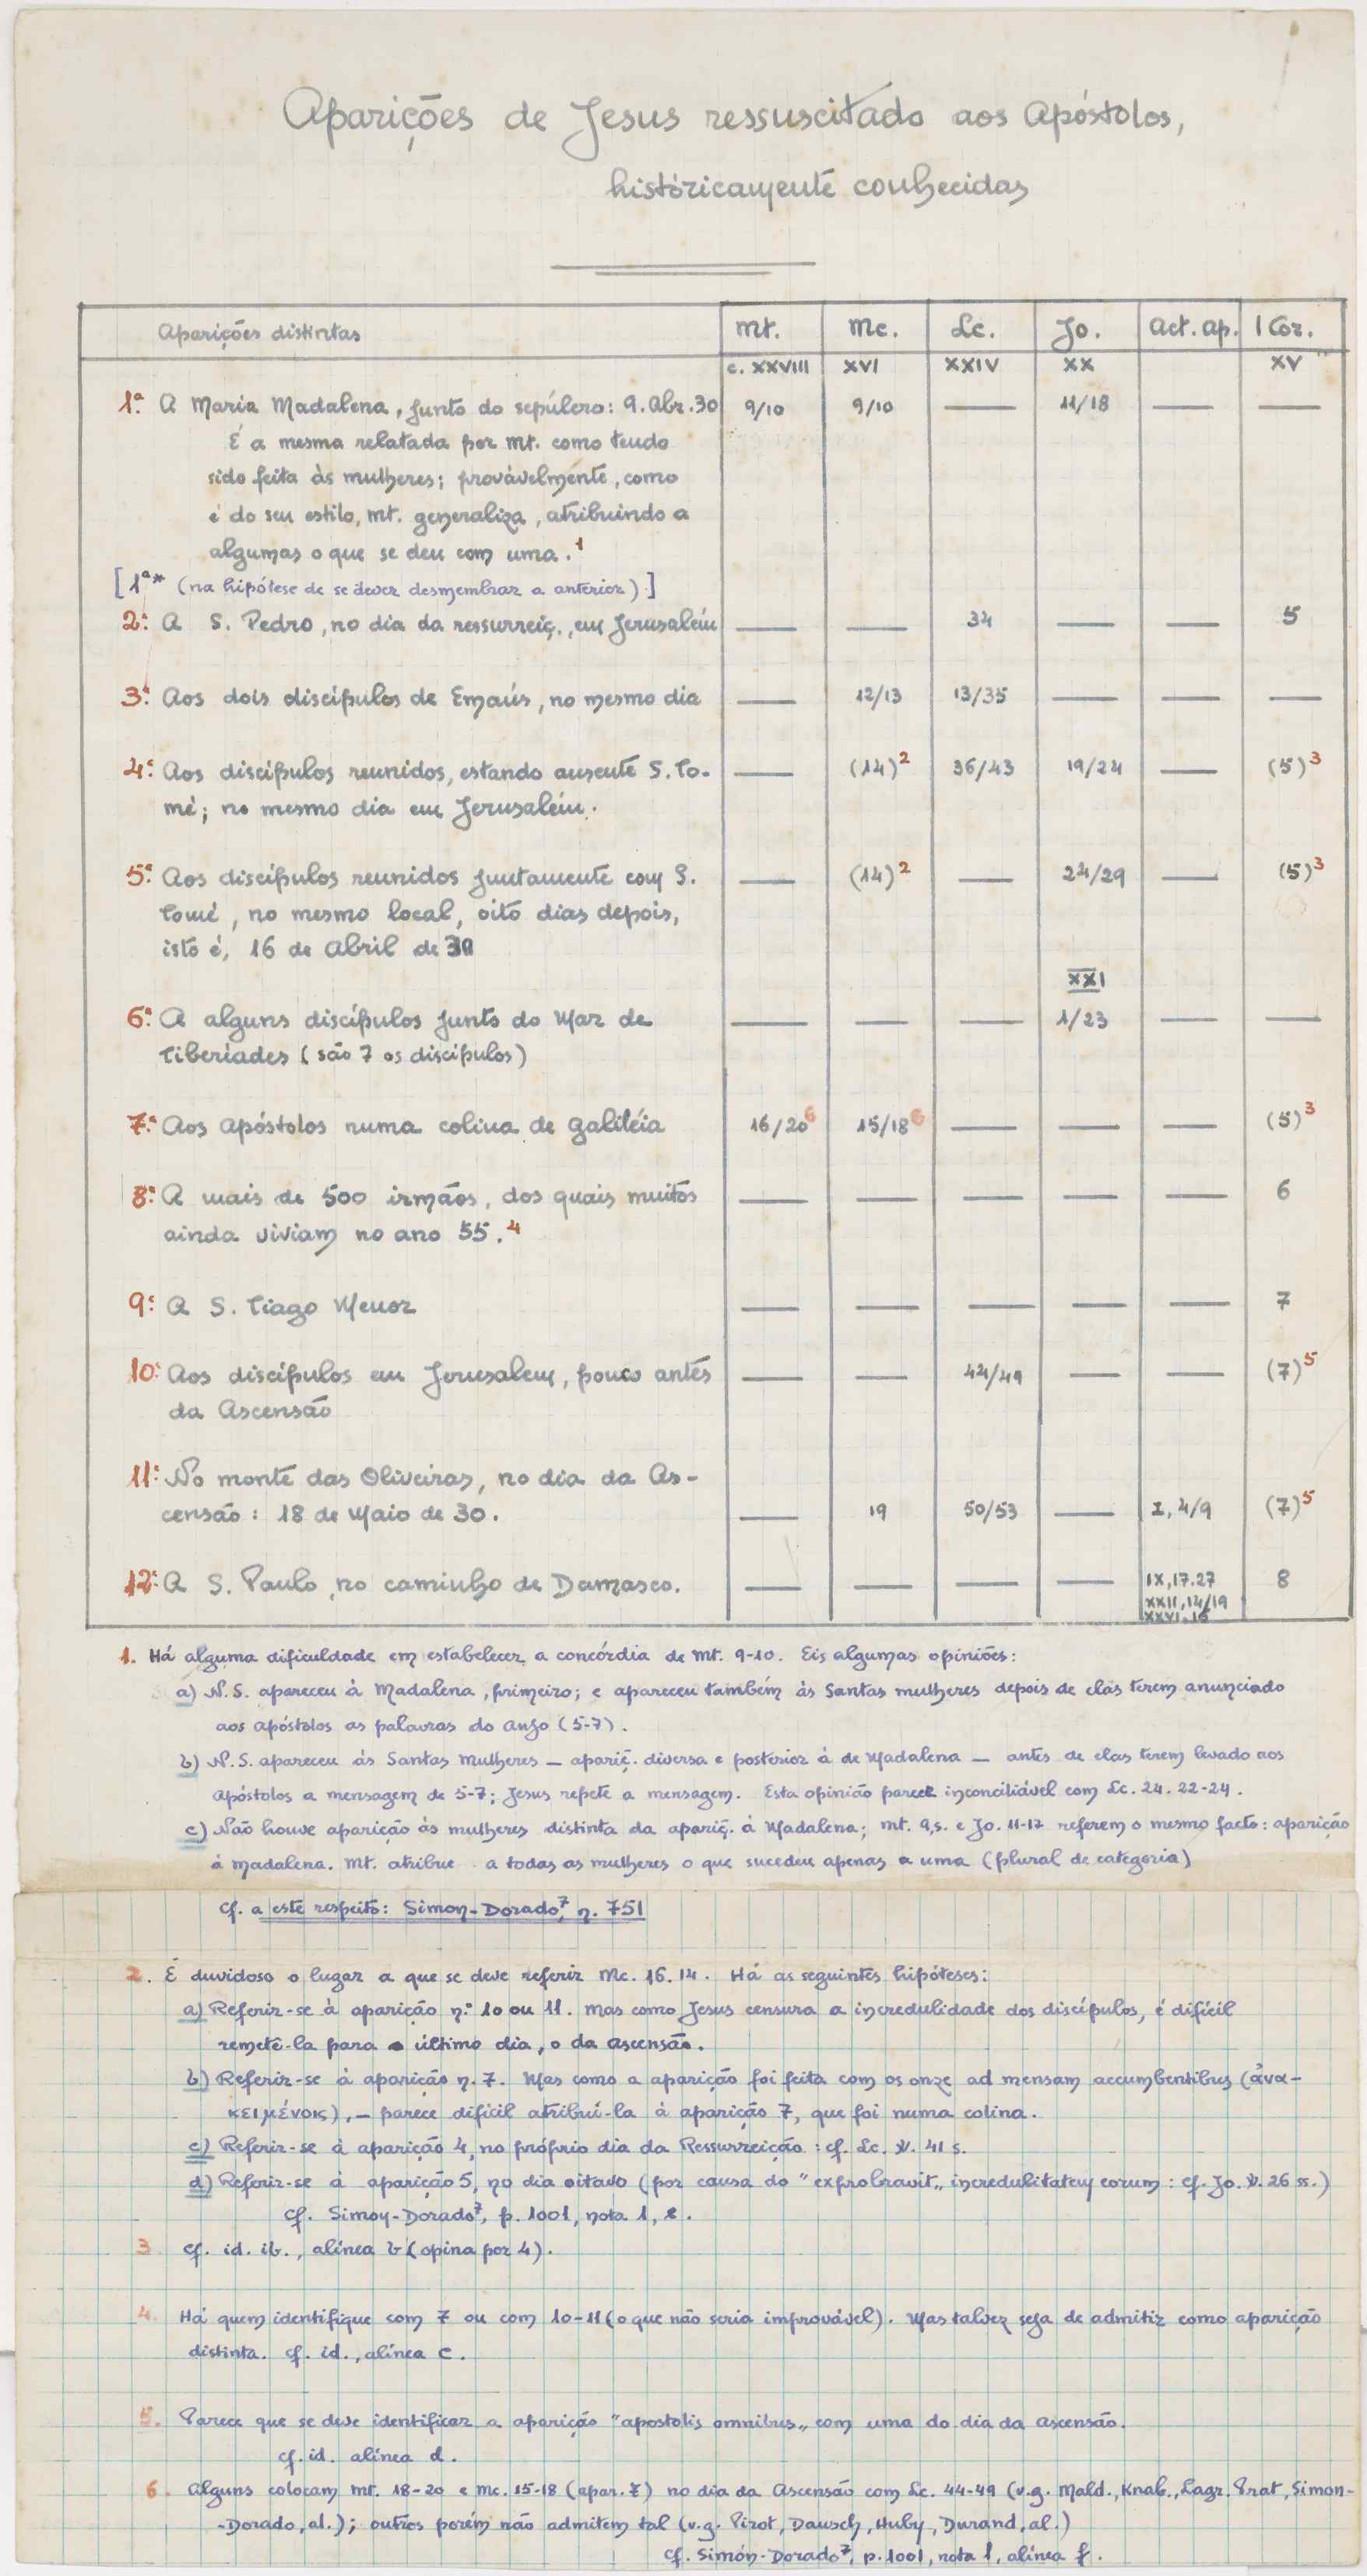 Aparições de Jesus ressuscitado aos Apóstolos,
històricamente conhecidas
Aparições distintas Mt. Mc. Lc. Jo. Act. Ap. I Cor.
c. XXVIII XVI XXIV XX XV
1ª. A Maria Madalena, junto do sepúlcro: 9. Abr. 30 9/10 9/10 — 11/18 — —
É a mesma relatada por Mt. como tendo
sido feita às mulheres; provàvelmente, como
é do seu estilo, Mt. generaliza, atribuindo a
algumas o que se deu com uma.¹
[1ª* (na hipótese de se dever desmembrar a anterior).]
2ª. A S. Pedro, no dia da ressurreiç., em Jerusalém — — 34 — — 5
3ª. Aos dois discípulos de Emaús, no mesmo dia — 12/13 13/35 — — —
4ª. Aos discípulos reunidos, estando ausente S. To- — (14)² 36/43 19/24 — (5)³
mé; no mesmo dia em Jerusalém.
5ª. Aos discípulos reunidos juntamente com S. — (14)² — 24/29 — (5)³
Tomé, no mesmo local, oito dias depois,
isto é, 16 de Abril de 30
XXI
6ª. A alguns discípulos junto do Mar de — — — 1/23 — —
Tiberíades (são 7 os discípulos)
7ª. Aos Apóstolos numa colina de Galiléia 16/20⁶ 15/18⁶ — — — (5)³
8ª. A mais de 500 irmãos, dos quais muitos — — — — — 6
ainda viviam no ano 55.⁴
9ª. A S. Tiago Menor — — — — — 7
10ª. Aos discípulos em Jerusalem, pouco antes — — 44/49 — — (7)⁵
da Ascensão
11ª. No monte das Oliveiras, no dia da As-
censão: 18 de Maio de 30. — 19 50/53 — I, 4/9 (7)⁵
12ª. A S. Paulo, no caminho de Damasco. — — — — IX, 17.27 8
XXII, 14/19
XXVI. 16
1. Há alguma dificuldade em estabelecer a concórdia de Mt. 9-10. Eis algumas opiniões:
a) N. S. apareceu à Madalena, primeiro; e apareceu também às Santas mulheres depois de elas terem anunciado
aos Apóstolos as palavras do Anjo (5-7).
b) N. S. apareceu às Santas Mulheres — apariç. diversa e posterior à de Madalena — antes de elas terem levado aos
Apóstolos a mensagem de 5-7; Jesus repete a mensagem. Esta opinião parece inconciliável com Lc. 24. 22-24.
c) Não houve aparição às mulheres distinta da apariç. à Madalena; Mt. 9,s. e Jo. 11-17 referem o mesmo facto: aparição
à Madalena. Mt. atribue a todas as mulheres o que sucedeu apenas a uma (plural de categoria)
Cf. a este respeito: Simon-Dorado⁷, n. 751
2. É duvidoso o lugar a que se deve referir Mc. 16. 14. Há as seguintes hipóteses:
a) Referir-se à aparição n.º 10 ou 11. Mas como Jesus censura a incredulidade dos discípulos, é difícil
remetê-la para o último dia, o da Ascensão.
b) Referir-se à aparição n. 7. Mas como a aparição foi feita com os onze ad mensam accumbentibus (ἀνα-
κειμένοις), — parece difícil atribuí-la à aparição 7, que foi numa colina.
c) Referir-se à aparição 4, no próprio dia da Ressurreição: cf. Lc. V. 41 s.
d) Referir-se à aparição 5, no dia oitavo (por causa do "exprobravit„ incredulitatem eorum: cf. Jo. V. 26 ss.)
Cf. Simon-Dorado⁷, p. 1001, nota 1, e.
3 Cf. id. ib., alínea b (opina por 4).
4. Há quem identifique com 7 ou com 10-11 (o que não seria improvável). Mas talvez seja de admitir como aparição
distinta. Cf. id., alínea c.
5. Parece que se deve identificar a aparição "apostolis omnibus„ com uma do dia da Ascensão.
cf. id. alínea d.
6. Alguns colocam Mt. 18-20 e Mc. 15-18 (apar. 7) no dia da Ascensão com Lc. 44-49 (v.g. Mald., Knab., Lagr. Prat, Simon-
-Dorado, al.); outros porém não admitem tal (v.g. Pirot, Dausch, Huby, Durand, al.)
Cf. Simón-Dorado⁷, p. 1001, nota 1, alínea f.